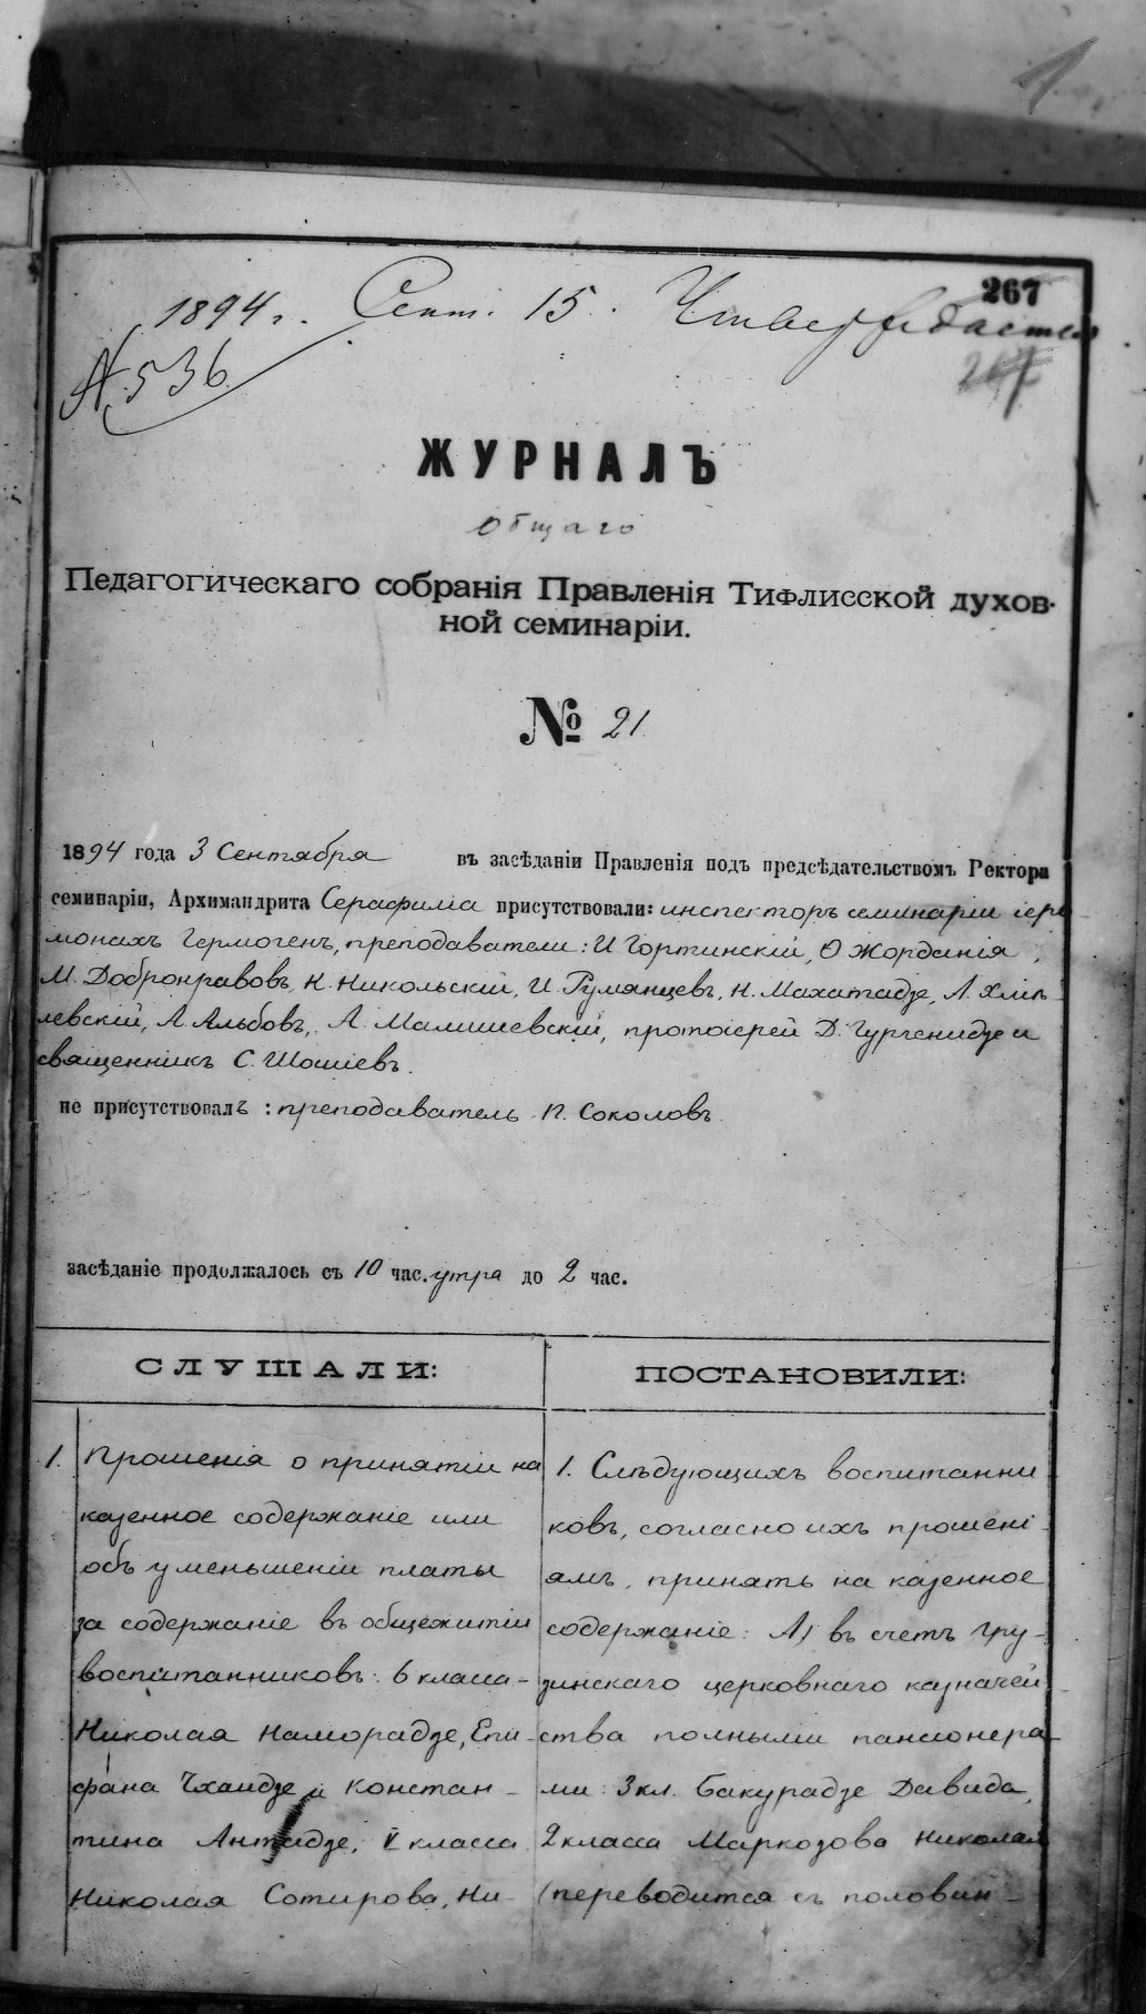 1
267
1894 г. Сент. 15. Утверждается
267
№ 536
ЖУРНАЛЪ
общаго
Педагогическаго собранія Правленія Тифлисской духов-
ной семинаріи.
№ 21
1894 года 3 Сентября въ засѣданіи Правленія подъ предсѣдательствомъ Ректора
семинаріи, Архимандрита Серафима присутствовали: инспекторъ семинаріи іеро
монахъ Гермогенъ, преподаватели: И Гортинскій, Ѳ Жорданія,
М. Добронравовъ, Н. Никольскій, И. Румянцевъ, Н. Махатадзе, А. Хмѣ
левскій, А. Альбовъ, А. Малишевскій, протоіерей Д. Гургенидзе и
священникъ С. Шошіевъ.
не присутствовалъ: преподаватель П. Соколовъ.
засѣданіе продолжалось съ 10 час. утра до 2 час.
СЛУШАЛИ:
1. Прошенія о принятіи на
казенное содержаніе или
объ уменьшеніи платы
за содержаніе въ общежитіи
воспитанниковъ: 6 класса -
Николая Наморадзе, Епи-
фана Чхаидзе и Констан-
тина Антадзе, V класса
Николая Сотирова, Ни-
ПОСТАНОВИЛИ:
1. Слѣдующихъ воспитанни
ковъ, согласно ихъ прошені-
ямъ, принять на казенное
содержаніе: А) въ счетъ гру-
зинскаго церковнаго казначей-
ства полными пансіонера-
ми: 3 кл. Бакурадзе Давида,
2 класса Маркозова Николая
(переводится съ половин-